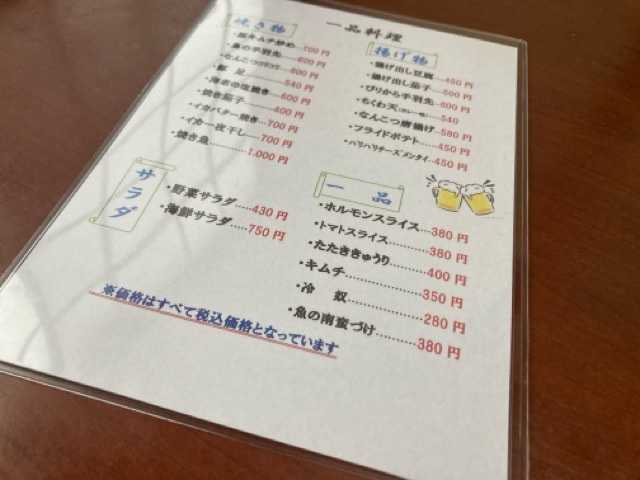 一品料理
焼き物
・豚キムチ炒め…700円
・鳥の手羽先……600円
・なんこつ……600円
・豚 足………540円
・海老の塩焼き…600円
・焼き茄子………400円
・イカバター焼き…700円
・イカ一枚干し……700円
・焼き魚…………1,000円
揚げ物
・揚げ出し豆腐…450円
・揚げ出し茄子…500円
・ぴりから手羽先…600円
・ちくわ天…540
・なんこつ唐揚げ…580円
・フライドポテト…450円
・パリパリチーズメンタイ…450円
サラダ
・野菜サラダ……430円
・海鮮サラダ……750円
一品
・ホルモンスライス……380円
・トマトスライス…………380円
・たたききゅうり…………400円
・キムチ……………350円
・冷 奴………………280円
・魚の南蛮づけ…………380円
※価格はすべて税込価格となっています